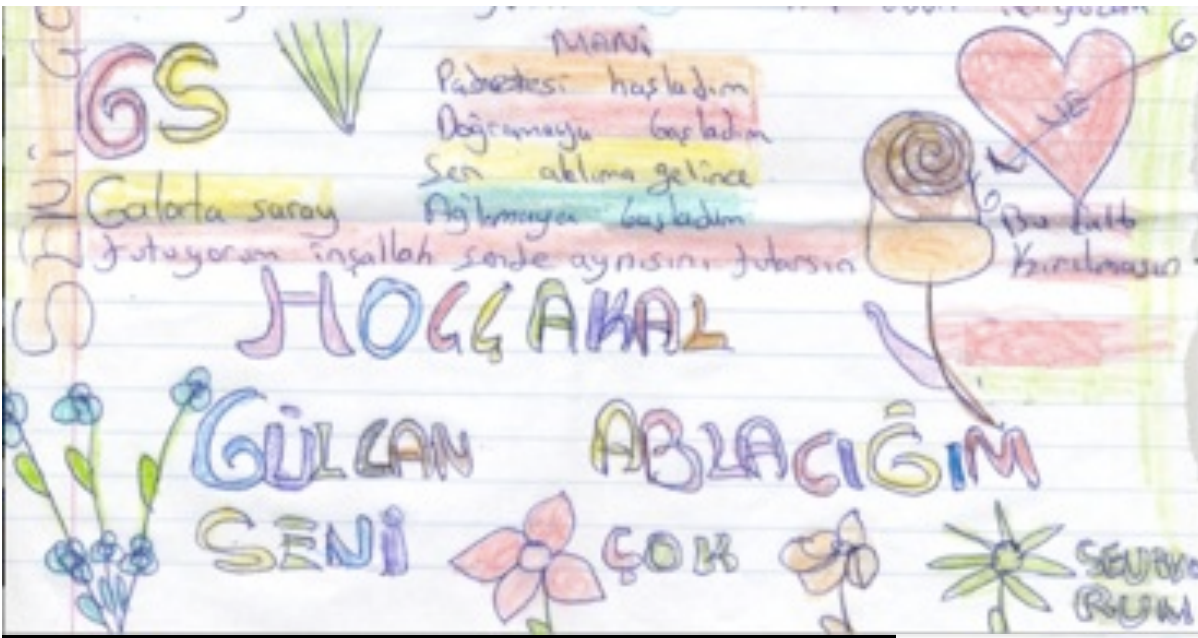 GS
MANİ
Patatesi haşladım
Doğramaya başladım
Sen aklıma gelince
Ağlamaya başladım
VE
G
Galata saray
tutuyorum inşallah sende aynısını tutarsın
Bu kalb
Kırılmasın
HOÇÇAKAL
GÜLCAN ABLACIĞIM
SENİ ÇOK
SEVİYO
RUM